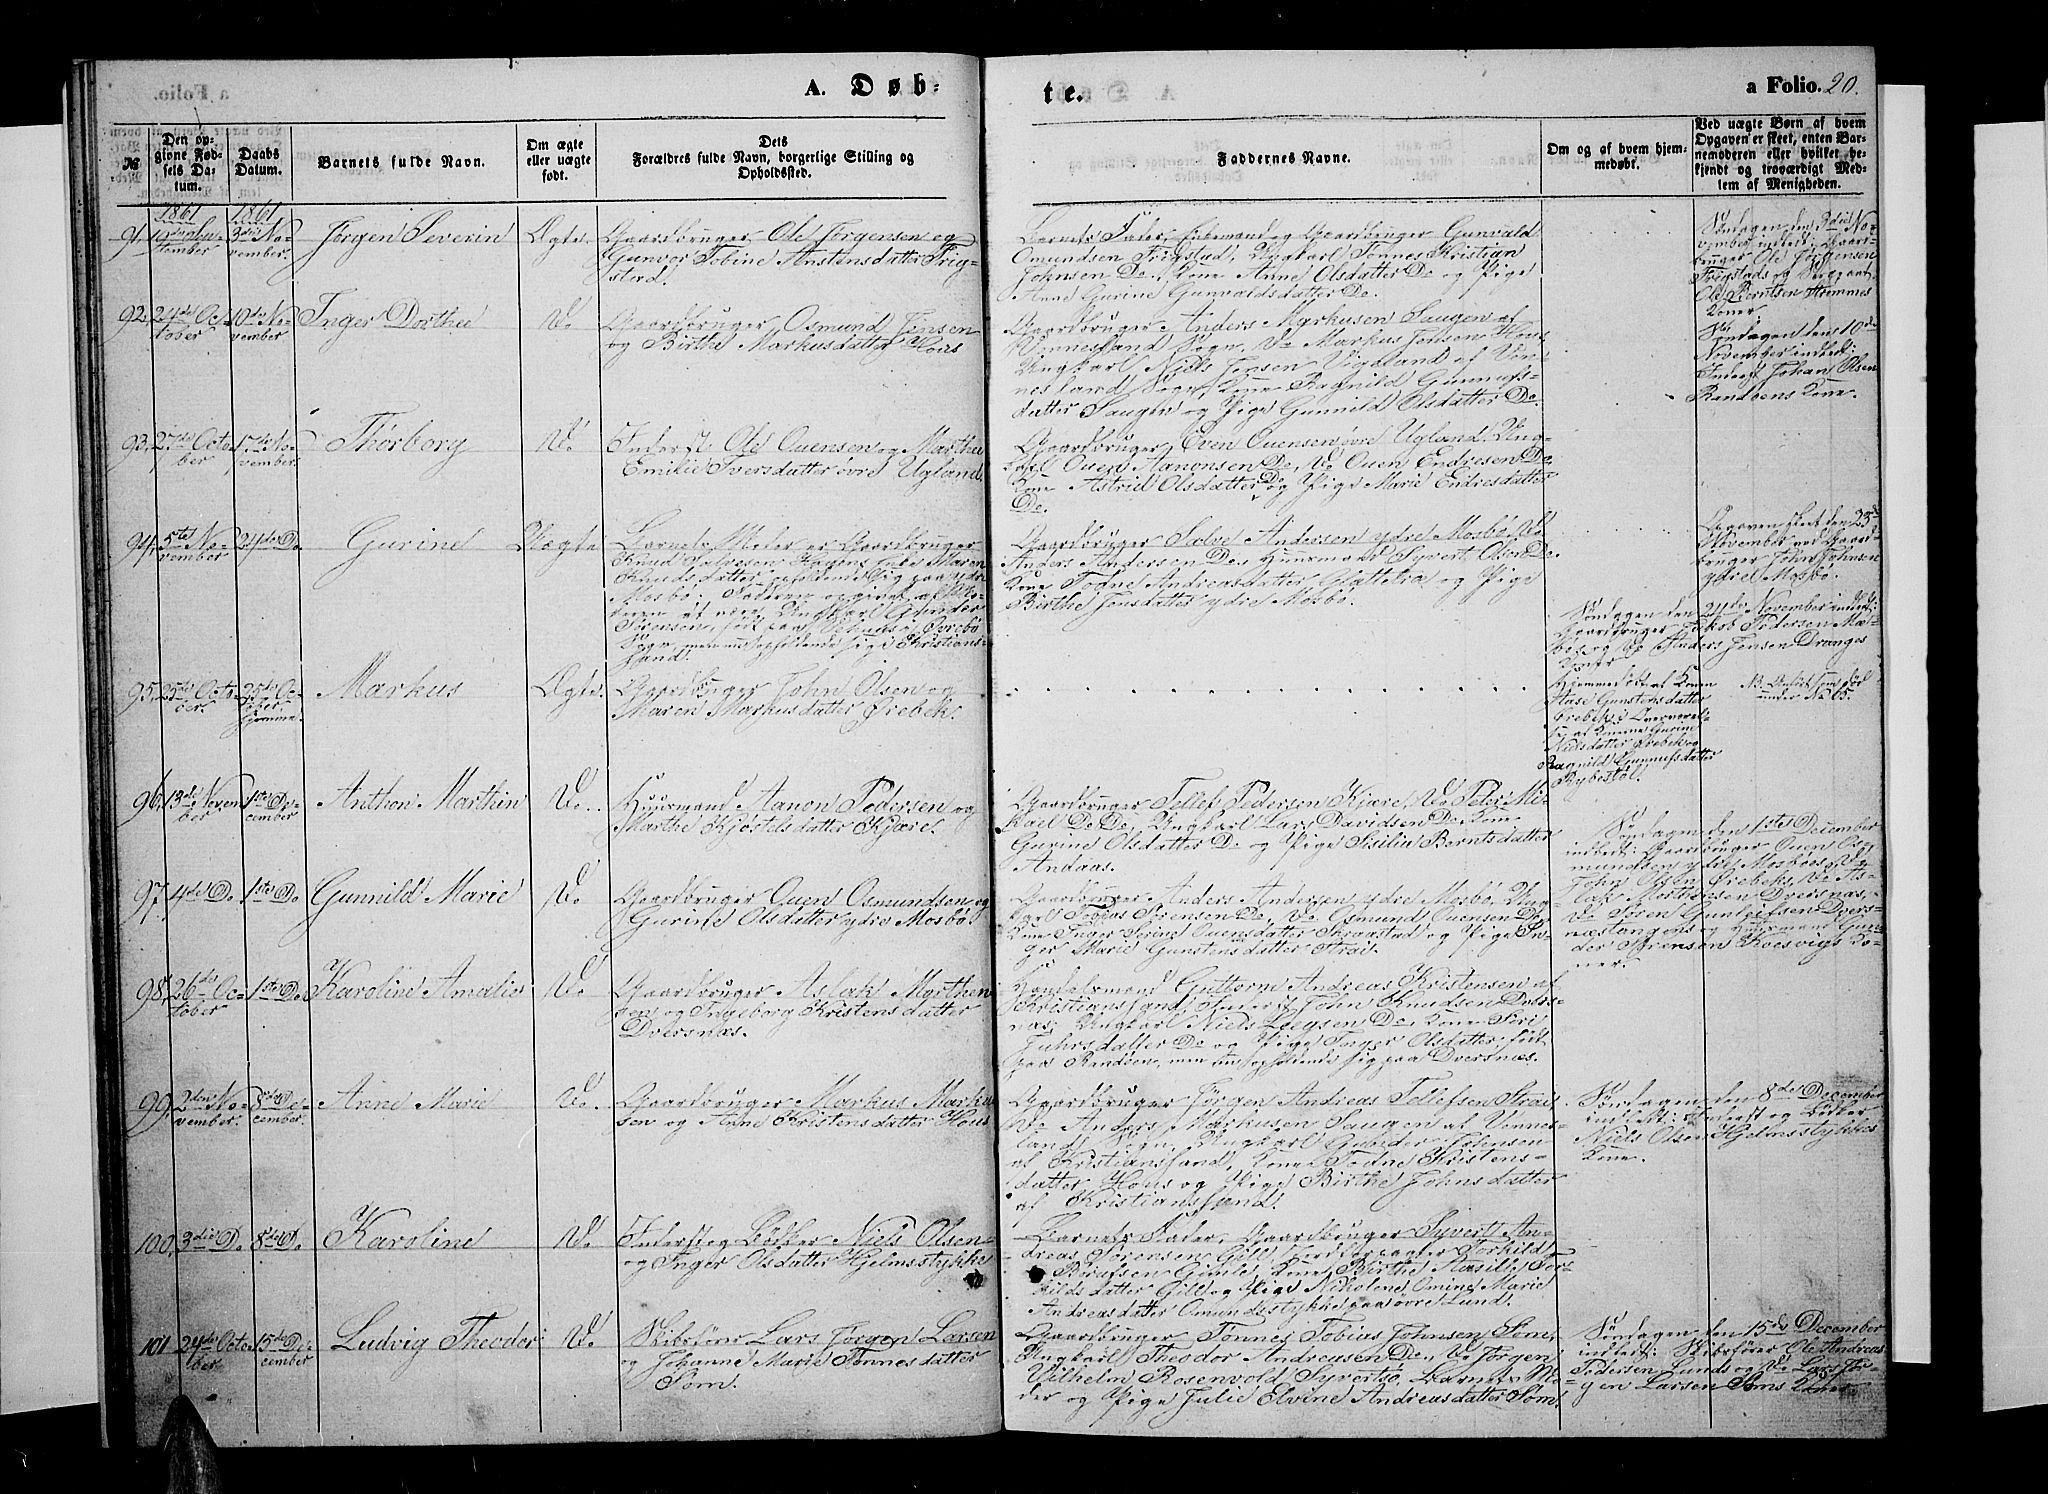 A. Døb-
te.
a Folio. 20.
№
Den op-
givne Fød-
sels Da-
tum.
Daabs
Datum.
Barnets fulde Navn.
Om ægte
eller uægte
født.
Dets
Forældres fulde Navn, borgerlige Stilling og
Opholdssted.
Faddernes Navne.
Om og af hvem hjem-
medøbt.
Ved uægte Børn af hvem
Opgaven er skeet, enten Bar-
nemoderen eller hvilket be-
kjendt og troværdigt Med-
lem af Menigheden.
1861
1861
91.
3die No-
vember.
Jørgen Severin
Ægte
Gaardbruger Ole Jørgensen og
Gunvor Tobine Anstensdatter Frig-
stad.
Barnets Fader, Enkemand og Gaardbruger Gunvald
Omundsen Frigstad, Ungkarl Tønnes Kristian
Johnsen Do, Kone Anne Olsdatter Do og Pige
Anne Gurine Gunvaldsdatter Do.
Søndagen den 3die No-
vember indledt: Gaard-
bruger Ole Jørgensen
Frigstads og Sergeant
Ole Berntsen Strømmes
Koner.
92.
24de Oc-
tober
10de No-
vember
Inger Dorthea
Do
Gaardbruger Osmund Jensen
og Birthe Markusdatter Hous
Gaardbruger Anders Markusen Saugen af
Vennesland Sogn, Do Markus Jensen Hous
Ungkarl Niels Jensen Vigeland af Ven-
nesland Sogn, Kone Ragnild Gunnufs-
datter Saugen og Pige Gunnild Olsdatter Do.
Søndagen den 10de
November indledt:
Inderst Johan Olsen
Randøens Kone.
93.
27de Octo-
ber
17de No-
vember.
Thorborg
Do
Inderst Ole Ouensen og Marthe
Emilie Iversdatter øvre Ugland.
Gaardbruger Even Ouensen øvre Ugland, Ung-
karl Ouen Aanonsen Do, Do Ouen Endresen Do
Kone Astrid Olsdatter Do og Pige Marie Endresdatter
Do.
94.
5te No-
vember
24de Do
Gurine
Uægte
Barnets Moder er Gaardbruger
Knud Salvesen
Knudsdatter opholdende sig paa ydre
Mosbø. Faderen opgivet af Mo-
deren at være Ungkarl Gunder
Tørensen, født paa
Sogn, men nu opholdende sig i Christians-
sand.
Gaardbruger Salve Andersen ydre Mosbø, Do
Anders Andersen Do, Huusmand Syvert Olsen Do
Kone Todne Andreasdatter Slettetra og Pige
Birthe Jensdatter ydre Mosbø.
Opgaven skeet den 23de
November ved Gaard-
bruger John Johnsen
ydre Mosbø.
Søndagen den 24de November indledt:
Gaardbruger Jakob Pedersen
og Do Anders Jensen Dranges
Koner
95.
25de Octo-
ber.
25de Oc-
tober
hjemme.
Markus
Ægte.
Gaardbruger John Olsen og
Maren Markusdatter Ørebek.
Hjemmedøbt af Konen
Aase Gunstensdatter
Ørebek i Overværel-
se af Konerne Gurine
Nielsdatter Ørebek og
Ragnild Gunnufsdatter
Rybestøl.
under No 65.
96.
13de Novem-
ber
1ste De-
cember
Anthon Marthin
Do.
Huusmand Aanon Pedersen og
Marthe Kjøstelsdatter Kjære.
Gaardbruger Tellef Pedersen Kjære, Do Peter Mi-
kael Do Do, Ungkarl Lars Davidsen Do, Kone
Gurine Olsdatter Do og Pige Sisilia Berntsdatter
Andaas.
Søndagen den 1ste December
indledt: Gaardbruger Ouen Os-
mundsen ydre Mosbøes, Do
John Olsen Ørebeks, Do As-
lak Mortensen Dversnæs,
Do Søren Gunleifsen Dvers-
næstangens og Huusmand Gun-
der Sørensen Kosvigs Ko-
ner.
97.
4de Do
1ste Do
Gunnild Marie
Do
Gaardbruger Ouen Osmundsen og
Gurine Olsdatter ydre Mosbø.
Gaardbruger Anders Andersen ydre Mosbø, Ung-
karl Tobias Sørensen Do, Do Osmund Ouensen Do,
Kone Inger Serine Ouensdatter Straastad og Pige In-
ger Marie Gunstensdatter Strai.
98.
26de Oc-
tober
1ste Do
Karoline Amalie
Do
Gaardbruger Aslak Morthen-
sen og Ingeborg Kristensdatter
Dversnæs.
Handelsmand Guttorm Andreas Kristensen af
Kristianssand, Inderst John Knudsen Dvers-
næs, Ungkarl Niels Do, Kone Siri
Do og Pige Inger Olsdatter født
paa Randøen, men nu opholdende sig paa Dversnæs.
99.
2den No-
vember.
8de De-
cember.
Anne Marie
Do.
Gaardbruger Markus Marku-
sen og Anne Kristensdatter Hous
Gaardbruger Jørgen Andreas Tellefsen Strai,
Do Anders Markusen Saugen af Vennes-
land Sogn, Ungkarl Gunder
af Kristianssand, Kone Todne Kristens-
datter Hous og Pige Birthe Johnsdatter
af Kristianssand.
Søndagen den 8de December
indledt: Inderst og Bødker
Niels Olsen Hjelmsstykkes
Kone.
100.
3die Do
8de Do
Karoline
Do
Inderst og Bødker Niels Olsen
og Inger Olsdatter Hjelmsstykke
Barnets Fader, Gaardbruger Syvert An-
dreas Sørensen Gill, Torkild
Gimle, Kone Birthe Aasille Tor-
kildsdatter Gill og Pige Nikoline Omine Marie
Andreasdatter Omundsstykke paa øvre Lund.
101
24de Octo-
ber
15de De-
cember
Ludvig Theodor
Do
Skibsfører Lars Jørgen Larsen
og Johanne Marie Tønnesdatter
Søm.
Gaardbruger Tønnes Tobias Johnsen Søm,
Ungkarl Theodor Andreasen Do, Do Jørgen
Vilhelm Rosenvold Syvertsø, Barnets Mo-
der og Pige Julie Elvine Andreasdatter Søm.
Søndagen den 15de December
indledt: Skibsfører Ole Andreas
Pedersen Lunds og Do Lars Jør-
gen Larsen Søms Koner